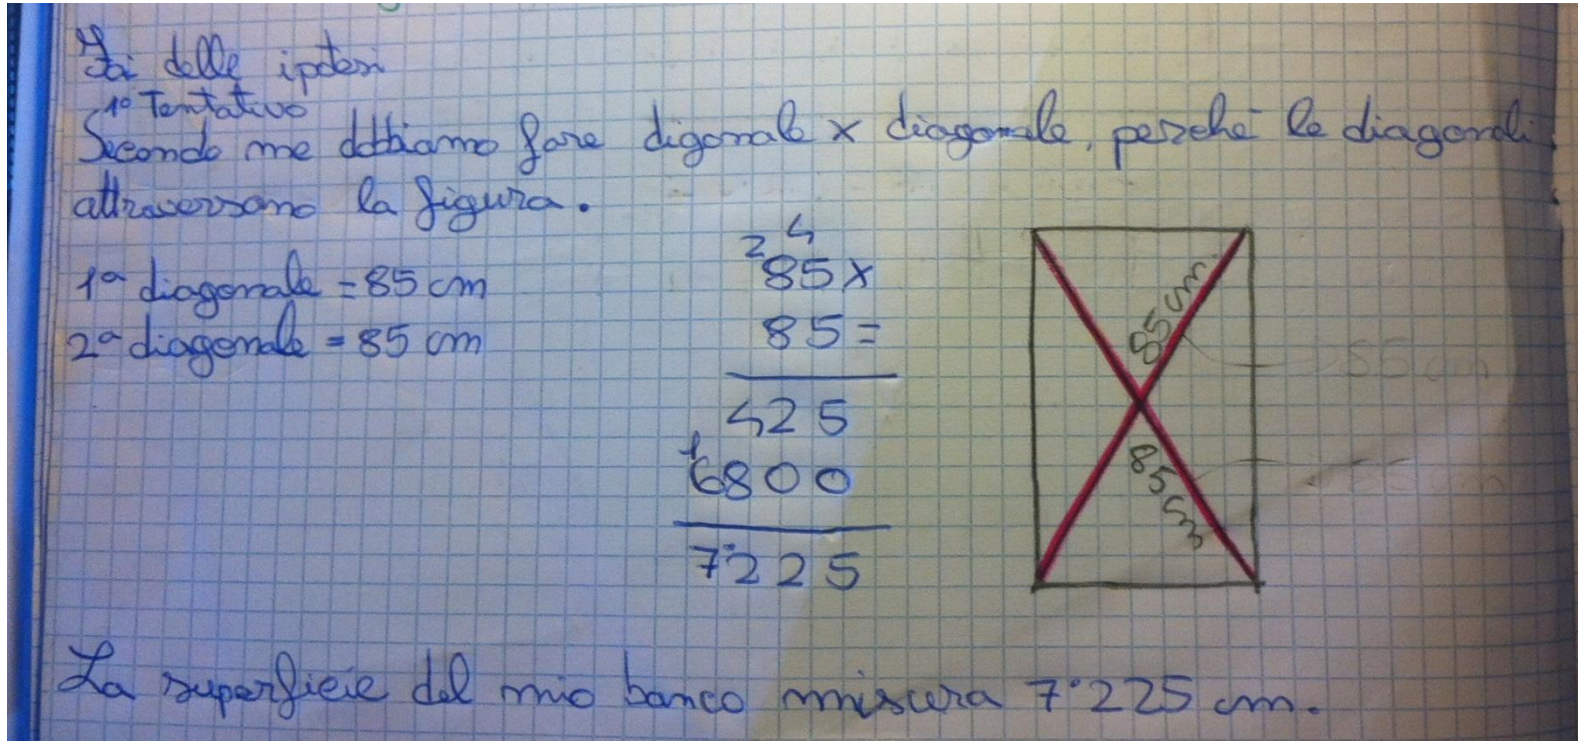 Fai delle ipotesi
1° Tentativo
Secondo me dobbiamo fare digonale x diagonale, perché le diagonali
attraversano la figura.
1ª diagonale = 85 cm
2ª diagonale = 85 cm
2 4
85x
85=
425
1
6800
7˙225
85 cm
85 cm
85 cm
La superficie del mio banco misura 7˙225 cm.